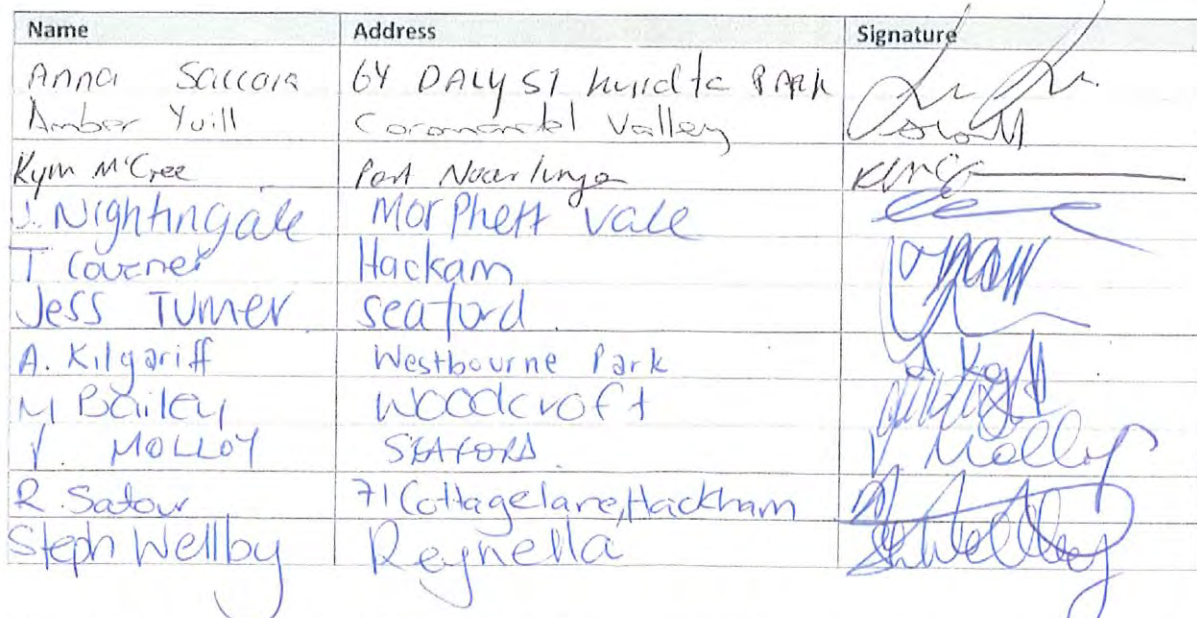 Name Address Signature
Anna 64 DALY ST PARK
Amber Yuill Coromandel Valley
Kym McCree Port Noarlunga
J. Nightingale Morphett vale
T. Hackam
Jess Turner seaford
A. Kilgariff Westbourne Park
M Bailey Woodcroft
V. MOLLOY SEAFORD V Molloy
R. Satour 71 Cottagelane, Hackham
Steph Wellby Reynella SWellby